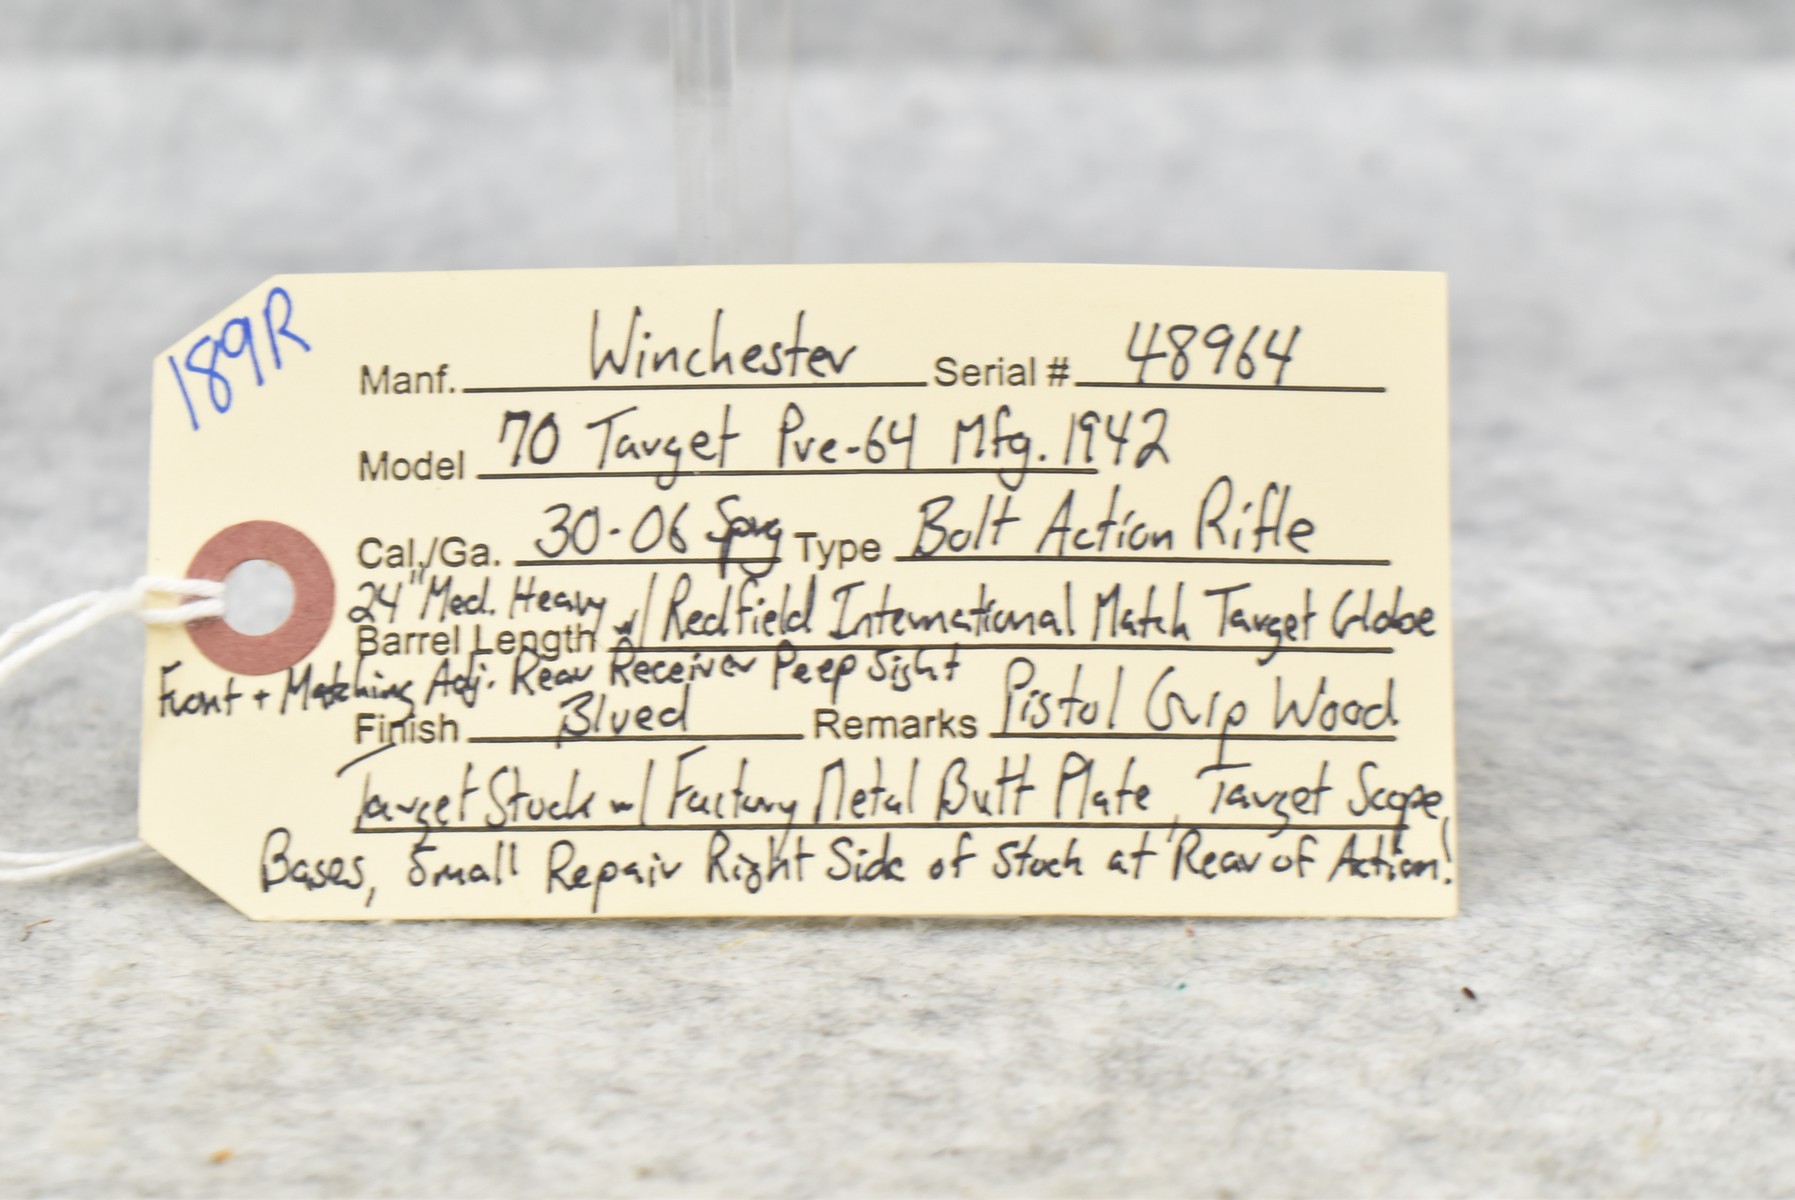 189R
Manf. Winchester Serial # 48964
Model 70 Target Pre-64 Mfg. 1942
Cal./Ga. 30-06 Sprg Type Bolt Action Rifle
24" Med. Heavy w/ Redfield International Match Target Globe
Barrel Length
Front + Matching Adj. Rear Receiver Peep Sight
Finish Blued Remarks Pistol Grip Wood
Target Stock w/ Factory Metal Butt Plate, Target Scope
Bases, Small Repair Right Side of Stock at Rear of Action!